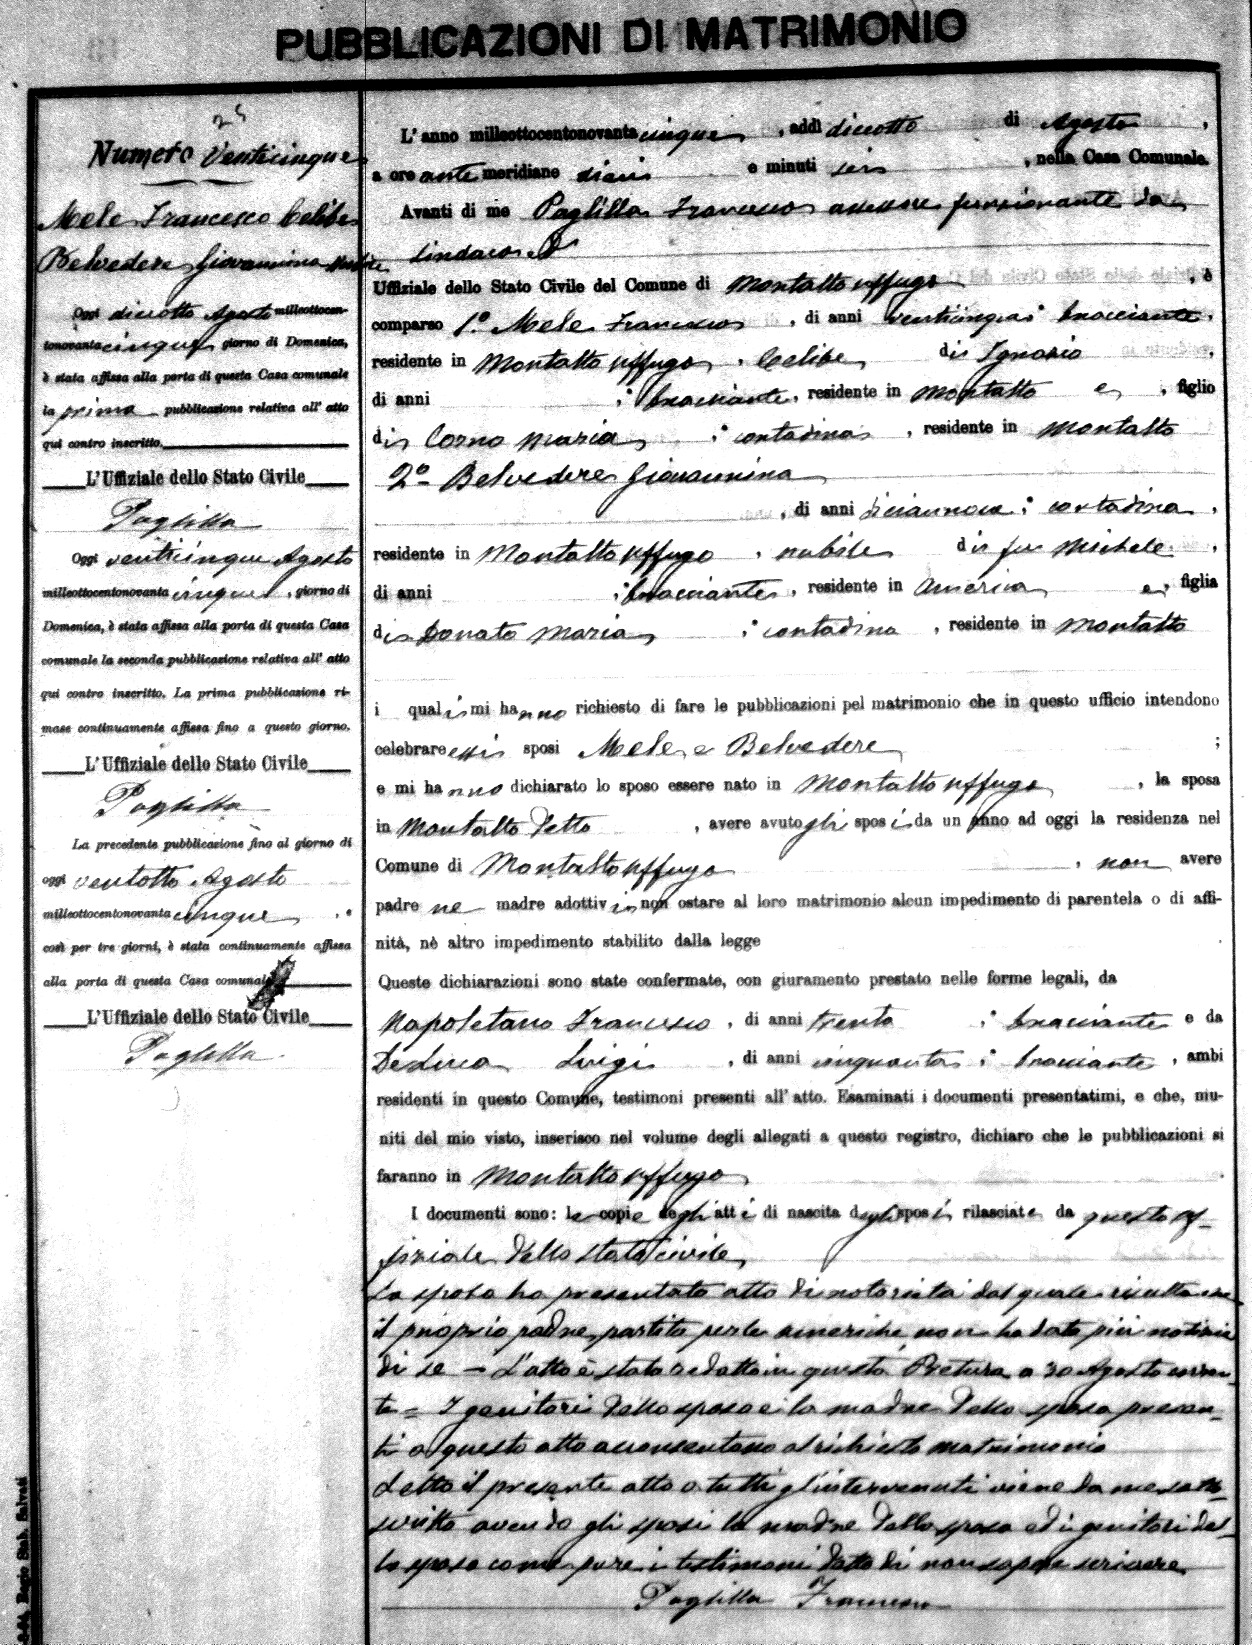 PUBBLICAZIONI DI MATRIMONIO
25
Numero Venticinque
Mele Francesco Celibe
Belvedere Giovannina Nubile
Oggi diciotto Agosto milleottocen-
tonovantacinque giorno di Domenica,
è stata affissa alla porta di questa Casa comunale
la prima pubblicazione relativa all' atto
qui contro inscritto.
L'Uffiziale dello Stato Civile
Paglilla
Oggi venticinque Agosto
milleottocentonovantacinque, giorno di
Domenica, è stata affissa alla porta di questa Casa
comunale la seconda pubblicazione relativa all' atto
qui contro inscritto. La prima pubblicazione ri-
mase continuamente affissa fino a questo giorno.
L'Uffiziale dello Stato Civile
Paglilla
La precedente pubblicazione fino al giorno di
oggi ventotto Agosto
milleottocentonovantacinque, e
così per tre giorni, è stata continuamente affissa
alla porta di questa Casa comunale
L'Uffiziale dello Stato Civile
Paglilla
L' anno milleottocentonovantacinque, addì diciotto di Agosto,
a ore ante meridiane dieci e minuti seis, nella Casa Comunale.
Avanti di me Paglilla Francesco assessore funzionante da
sindaco
Uffiziale dello Stato Civile del Comune di Montalto Uffugo, è
comparso 1º Mele Francesco, di anni venticinque; bracciante,
residente in Montalto Uffugo, celibe di Ignazio,
di anni ; bracciante, residente in Montalto e, figlio
di Corno Maria; contadina, residente in Montalto
2º Belvedere Giovannina
, di anni diciannove; contadina,
residente in Montalto Uffugo, nubile di fu Michele,
di anni ; bracciante, residente in America e, figlia
di Donato Maria; contadina, residente in Montalto
i quali mi hanno richiesto di fare le pubblicazioni pel matrimonio che in questo ufficio intendono
celebrare essi sposi Mele e Belvedere;
e mi hanno dichiarato lo sposo essere nato in Montalto Uffugo, la sposa
in Montalto detto, avere avuto gli sposi da un anno ad oggi la residenza nel
Comune di Montalto Uffugo, non avere
padre ne madre adottivi, non ostare al loro matrimonio alcun impedimento di parentela o di affi-
nità, nè altro impedimento stabilito dalla legge
Queste dichiarazioni sono state confermate, con giuramento prestato nelle forme legali, da
Napoletano Francesco, di anni trenta; bracciante e da
DeLuca Luigi, di anni cinquanta; bracciante, ambi
residenti in questo Comune, testimoni presenti all' atto. Esaminati i documenti presentatimi, e che, mu-
niti del mio visto, inserisco nel volume degli allegati a questo registro, dichiaro che le pubblicazioni si
faranno in Montalto Uffugo
I documenti sono: le copie degli atti di nascita degli sposi rilasciate da questo uf-
fiziale dello stato civile
La sposa ha presentato atto di notorietà dal quale risulta che
il proprio padre, partito per le americhe non ha dato più notizie
di se — L'atto è stato redatto in questa Pretura a 30 Agosto corren-
te = I genitori dello sposo e la madre della sposa presen-
ti a questo atto acconsentono al richiesto matrimonio
Letto il presente atto a tutti gl'intervenuti viene da me sotto-
scritto avendo gli sposi la madre della sposa ed i genitori del-
lo sposo come pure i testimoni detto di non sapere scrivere
Paglilla Francesco